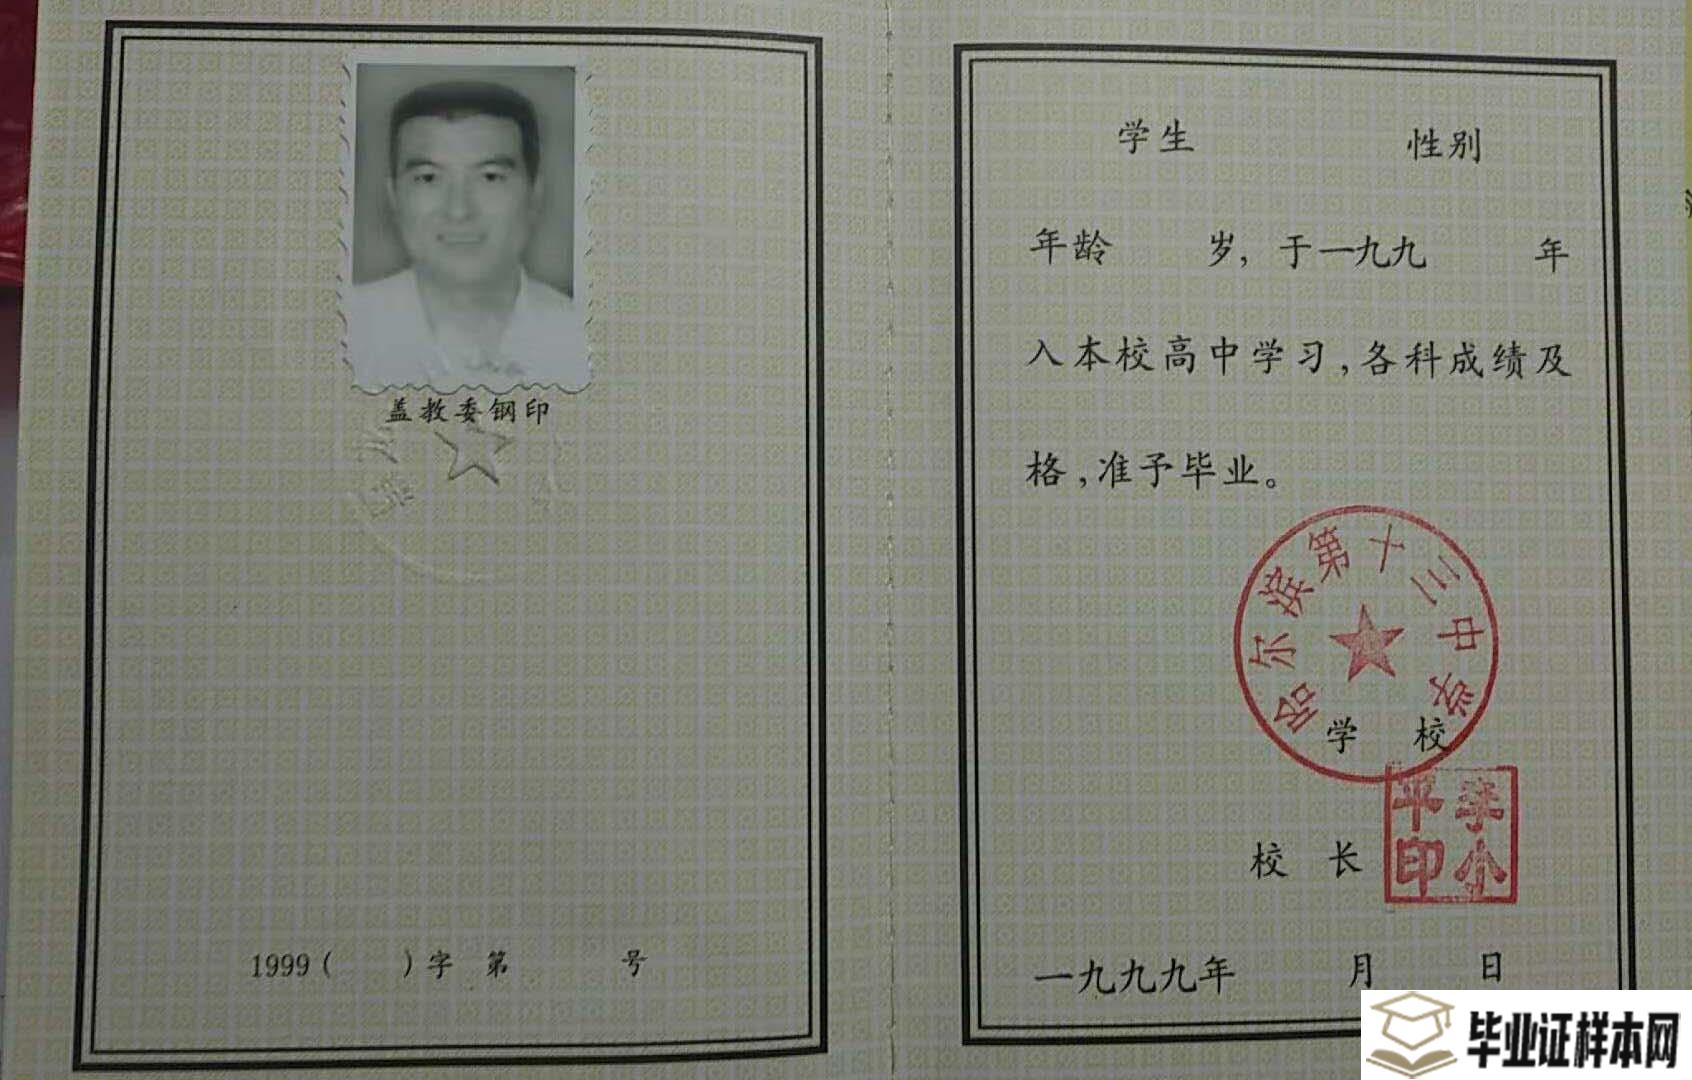 盖教委钢印
1999（　　）字 第　　　号
学生　　　　　性别
年龄　　　岁，于一九九　　　年
入本校高中学习，各科成绩及
格，准予毕业。
哈尔滨第十三中学
学 校
校 长
李小平印
一九九九年　　　月　　　日
毕业证样本网